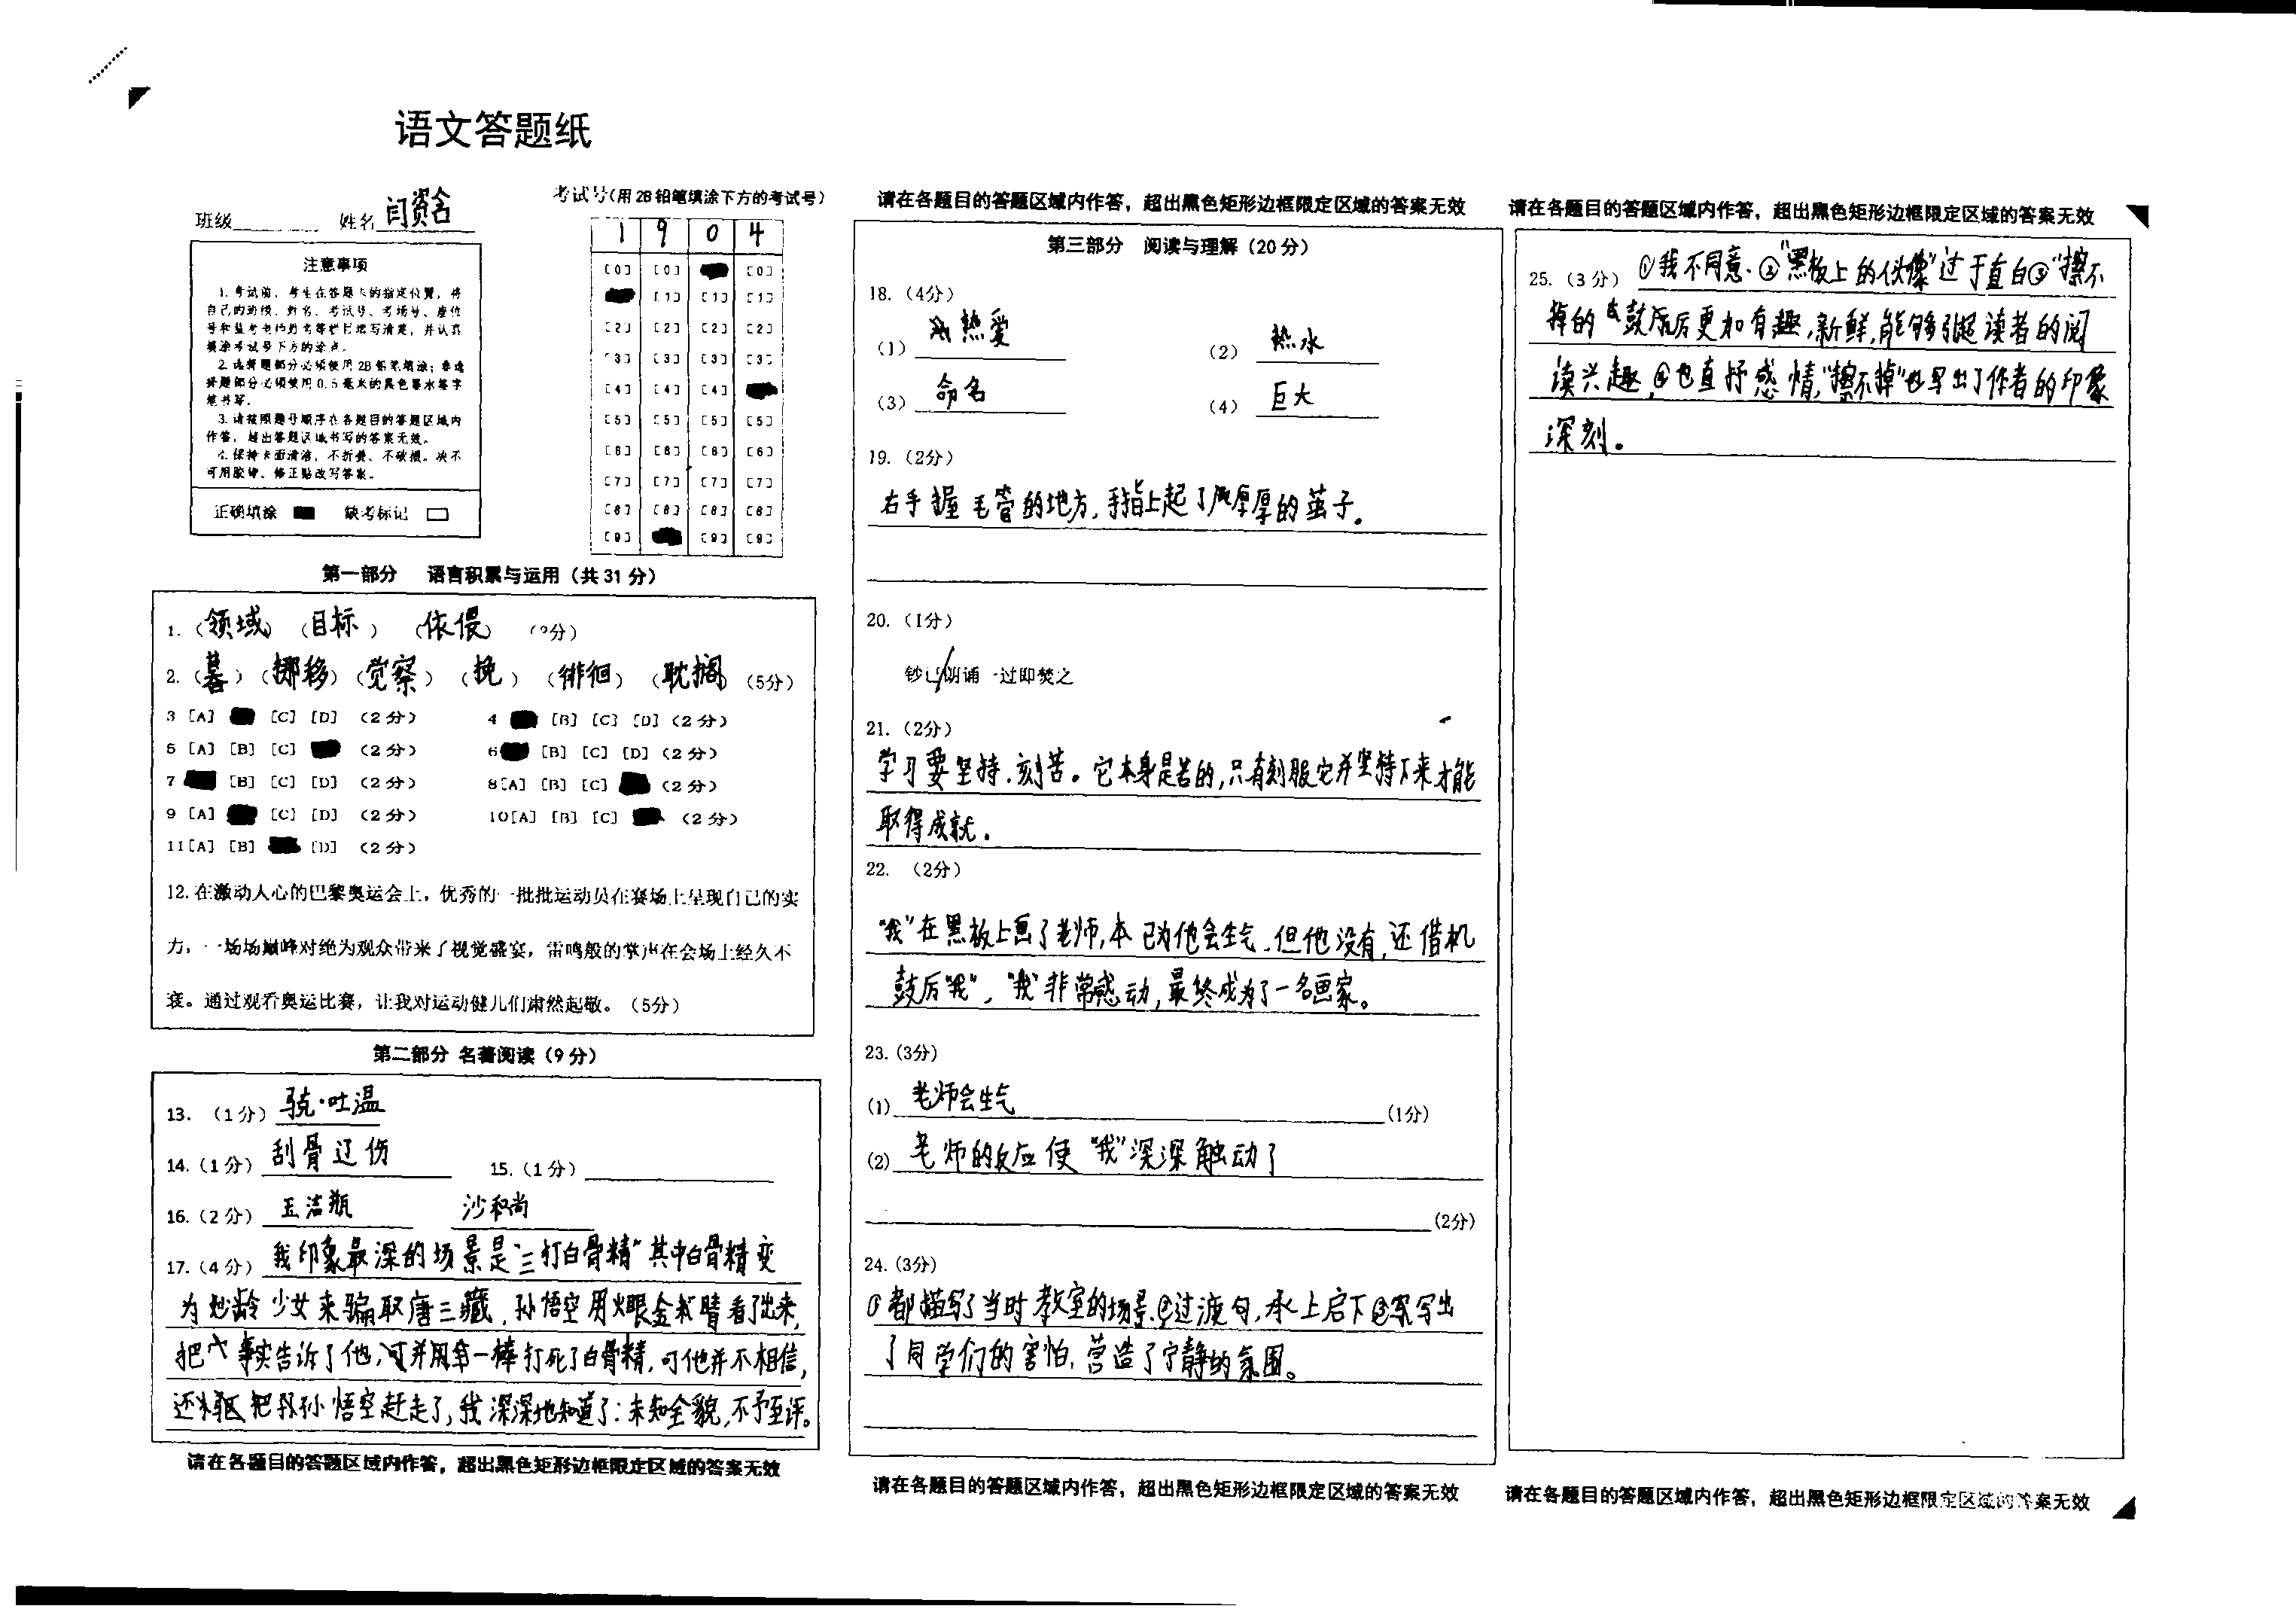 语文答题纸
班级 姓名 闫资含
考试号(用2B铅笔填涂下方的考试号)
1 9 0 4
[0] [0] [0]
[1] [1] [1]
[2] [2] [2] [2]
[3] [3] [3] [3]
[4] [4] [4]
[5] [5] [5] [5]
[6] [6] [6] [6]
[7] [7] [7] [7]
[8] [8] [8] [8]
[9] [9] [9]
注意事项
1.考试前,考生在答题卡的指定位置,将
自己的班级、姓名、考试号、考场号、座位
号和监考老师姓名等栏目填写清楚,并认真
填涂考试号下方的涂点。
2.选择题部分必须使用2B铅笔填涂;非选
择题部分必须使用0.5毫米的黑色墨水签字
笔书写。
3.请按照题号顺序在各题目的答题区域内
作答,超出答题区域书写的答案无效。
4.保持卡面清洁,不折叠、不破损。决不
可用胶带、修正贴改写答案。
正确填涂 缺考标记
第一部分 语言积累与运用(共31分)
1.(领域)(目标)(依偎)
2.(暮)(挪移)(觉察)(挽)(徘徊)(耽搁)(5分)
3 [A] [C] [D] (2分) 4 [B] [C] [D] (2分)
5 [A] [B] [C] (2分) 6 [B] [C] [D] (2分)
7 [B] [C] [D] (2分) 8[A] [B] [C] (2分)
9 [A] [C] [D] (2分) 10[A] [B] [C] (2分)
11[A] [B] [D] (2分)
12.在激动人心的巴黎奥运会上,优秀的一批批运动员在赛场上呈现自己的实
力,一场场巅峰对绝为观众带来了视觉盛宴,雷鸣般的掌声在会场上经久不
衰。通过观看奥运比赛,让我对运动健儿们肃然起敬。(5分)
第二部分 名著阅读(9分)
13.(1分)骁·吐温
14.(1分)刮骨辽伤 15.(1分)
16.(2分)玉洁瓶 沙和尚
17.(4分)我印象最深的场景是“三打白骨精”其中白骨精变
为妙龄少女来骗取唐三藏,孙悟空用火眼金睛看了出来,
把事实告诉了他,并用拿一棒打死了白骨精,可他并不相信,
还把孙悟空赶走了,我深深地知道了:未知全貌,不予至评。
请在各题目的答题区域内作答,超出黑色矩形边框限定区域的答案无效
请在各题目的答题区域内作答,超出黑色矩形边框限定区域的答案无效
第三部分 阅读与理解(20分)
18.(4分)
(1)热爱 (2)热水
(3)命名 (4)巨大
19.(2分)
右手握毛管的地方,手指上起了厚厚的茧子。
20.(1分)
钞已/朗诵一过即焚之
21.(2分)
学习要坚持、刻苦。它本身是苦的,只有刻服它并坚持下来才能
取得成就.
22. (2分)
“我”在黑板上画了老师,本已为他会生气,但他没有,还借机
鼓厉“我”,“我”非常感动,最终成为了一名画家。
23.(3分)
(1)老师会生气(1分)
(2)老师的反应使“我”深深触动了
(2分)
24.(3分)
①都描写了当时教室的场景.②过渡句,承上启下③写出
了同学们的害怕,营造了宁静的氛围。
请在各题目的答题区域内作答,超出黑色矩形边框限定区域的答案无效
请在各题目的答题区域内作答,超出黑色矩形边框限定区域的答案无效
25.(3分)①我不同意.②“黑板上的伙像”过于直白③“擦不
掉的鼓厉更加有趣,新鲜,能够引起读者的阅
读兴趣,④也直抒感情,“擦不掉”也写出了作者的印象
深刻。
请在各题目的答题区域内作答,超出黑色矩形边框限定区域的答案无效